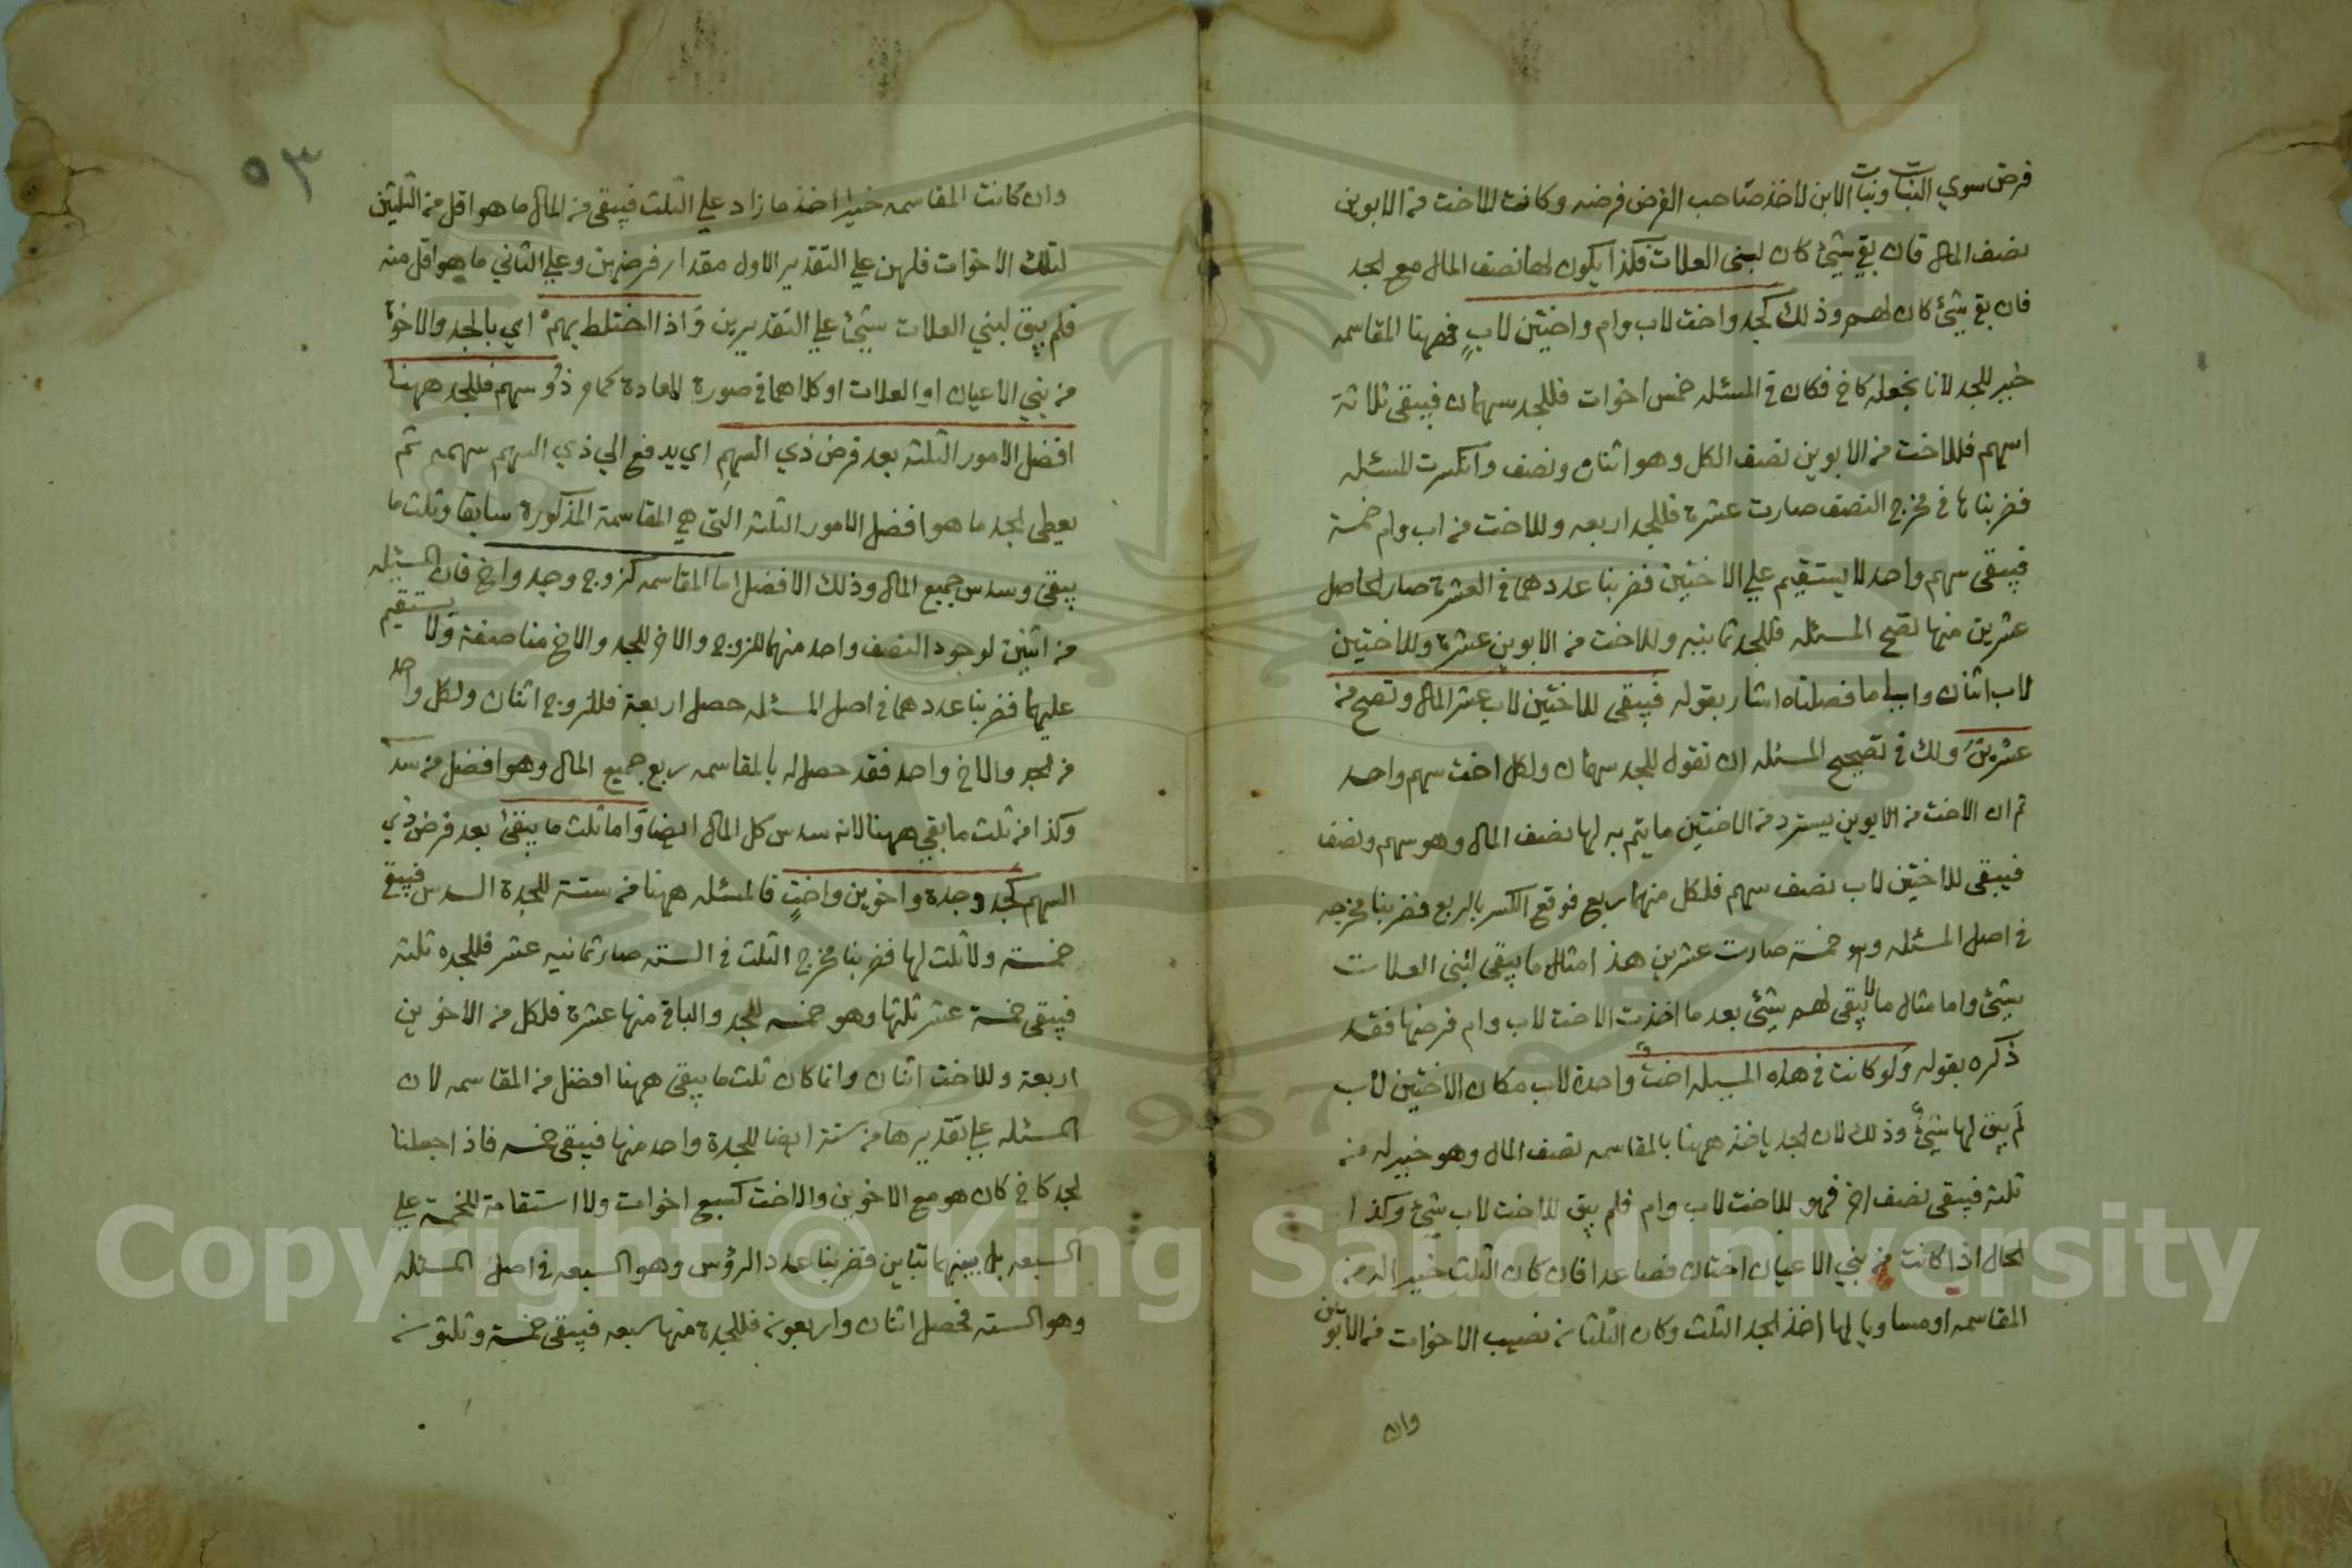 فرض سوي البنات وبنات الابن لاخذ صاحب الفرض فرضه وكانت للاخت من الابوين
نصف المال فان بقي شيئ كان لبني العلات فكذا يكون لها نصف المال مع الجد
فان بقي شيئ كان لهم وذلك كجد واخت لاب وام واختين لاب فههنا المقاسمه
خير للجد لانا نجعله كاخ فكان في المسئله خمس اخوات فللجد سهمان فيبقى ثلاثة
اسهم فللاخت من الابوين نصف الكل وهو اثنان ونصف وانكسرت المسئله
فضربناها في مخرج النصف صارت عشرة فللجد اربعه وللاخت من اب وام خمسة
فيبقى سهم واحد لا يستقيم علي الاختين فضربنا عددهما في العشرة صار الحاصل
عشرين منها تصح المسئله فللجد ثمانيه وللاخت من الابوين عشرة وللاختين
لاب اثنان والي ما فصلناه اشار بقوله فيبقى للاختين لاب عشر المال وتصح من
عشرين ولك في تصحيح المسئله ان تقول للجد سهمان ولكل اخت سهم واحد
ثم ان الاخت من الابوين يسترد من الاختين ما يتم به لها نصف المال وهو سهم ونصف
فيبقى للاختين لاب نصف سهم فلكل منهما ربع فوقع الكسر بالربع فضربنا مخرجه
في اصل المسئله وهو خمسة صارت عشرين هذا مثال ما يبقى لبني العلات
شيئ واما مثال ما لا يبقى لهم شيئ بعد ما اخذت الاخت لاب وام فرضها فقد
ذكره بقوله ولو كانت في هذه المسيله اخت واحدة لاب مكان الاختين لاب
لم يبق لها شيئ وذلك لان الجد ياخذ ههنا بالمقاسمه نصف المال وهو خير له من
ثلثه فيبقى نصف اخر فهو للاخت لاب وام فلم يبق للاخت لاب شيئ وكذا
الحال اذا كانت من بني الاعيان اختان فصاعدا فان كان الثلث خيرا له من
المقاسمه او مساويا لها اخذ الجد الثلث وكان الثلثان نصيب الاخوات من الابوين
وان
٥٣
وان كانت المقاسمه خيرا اخذ ما زاد علي الثلث فيبقى من المال ما هو اقل من الثلثين
لتلك الاخوات فلهن علي التقدير الاول مقدار فرضهن وعلي الثاني ما هو اقل منه
فلم يبق لبني العلات شيئ علي التقديرين واذا اختلط بهم اي بالجد والاخوة
من بني الاعيان او العلات او كلاهما في صورة المعادة كما مر ذو سهم فللجد ههنا
افضل الامور الثلثه بعد فرض ذي السهم اي يدفع الي ذي السهم سهمه ثم
يعطى الجد ما هو افضل الامور الثلثة التي هي المقاسمة المذكورة سابقا وثلث ما
يبقى وسدس جميع المال وذلك الافضل اما المقاسمه كزوج وجد واخ فان المسئله
من اثنين لوجود النصف واحد منهما للزوج والاخر للجد والاخ مناصفة ولا يستقيم
عليهما فضربنا عددهما في اصل المسئله حصل اربعة فللزوج اثنان ولكل واحد
من الجد والاخ واحد فقد حصل له بالمقاسمه ربع جميع المال وهو افضل من سدسه
وكذا من ثلث ما بقي ههنا لانه سدس كل المال ايضا واما ثلث ما يبقى بعد فرض ذي
السهم كجد وجدة واخوين واخت فالمسئله ههنا من ستة للجدة السدس فيبقى
خمسة ولا ثلث لها فضربنا مخرج الثلث في الستة صار ثمانيه عشر فللجده ثلثة
فيبقى خمسة عشر ثلثها وهو خمسه للجد والباقي منها عشرة فلكل من الاخوين
اربعة وللاخت اثنان وانما كان ثلث ما يبقى ههنا افضل من المقاسمه لان
المسئله علي تقديرها من ستة ايضا للجدة واحد منها فيبقى خمسه فاذا جعلنا
الجد كاخ كان هو مع الاخوين والاخت كسبع اخوات ولا استقامة للخمسة علي
السبعه بل بينهما تباين فضربنا عدد الرؤس وهو السبعه في اصل المسئله
وهو الستة فحصل اثنان واربعون فللجدة منها سبعه فيبقى خمسة وثلثون
Copyright © King Saud University
1957